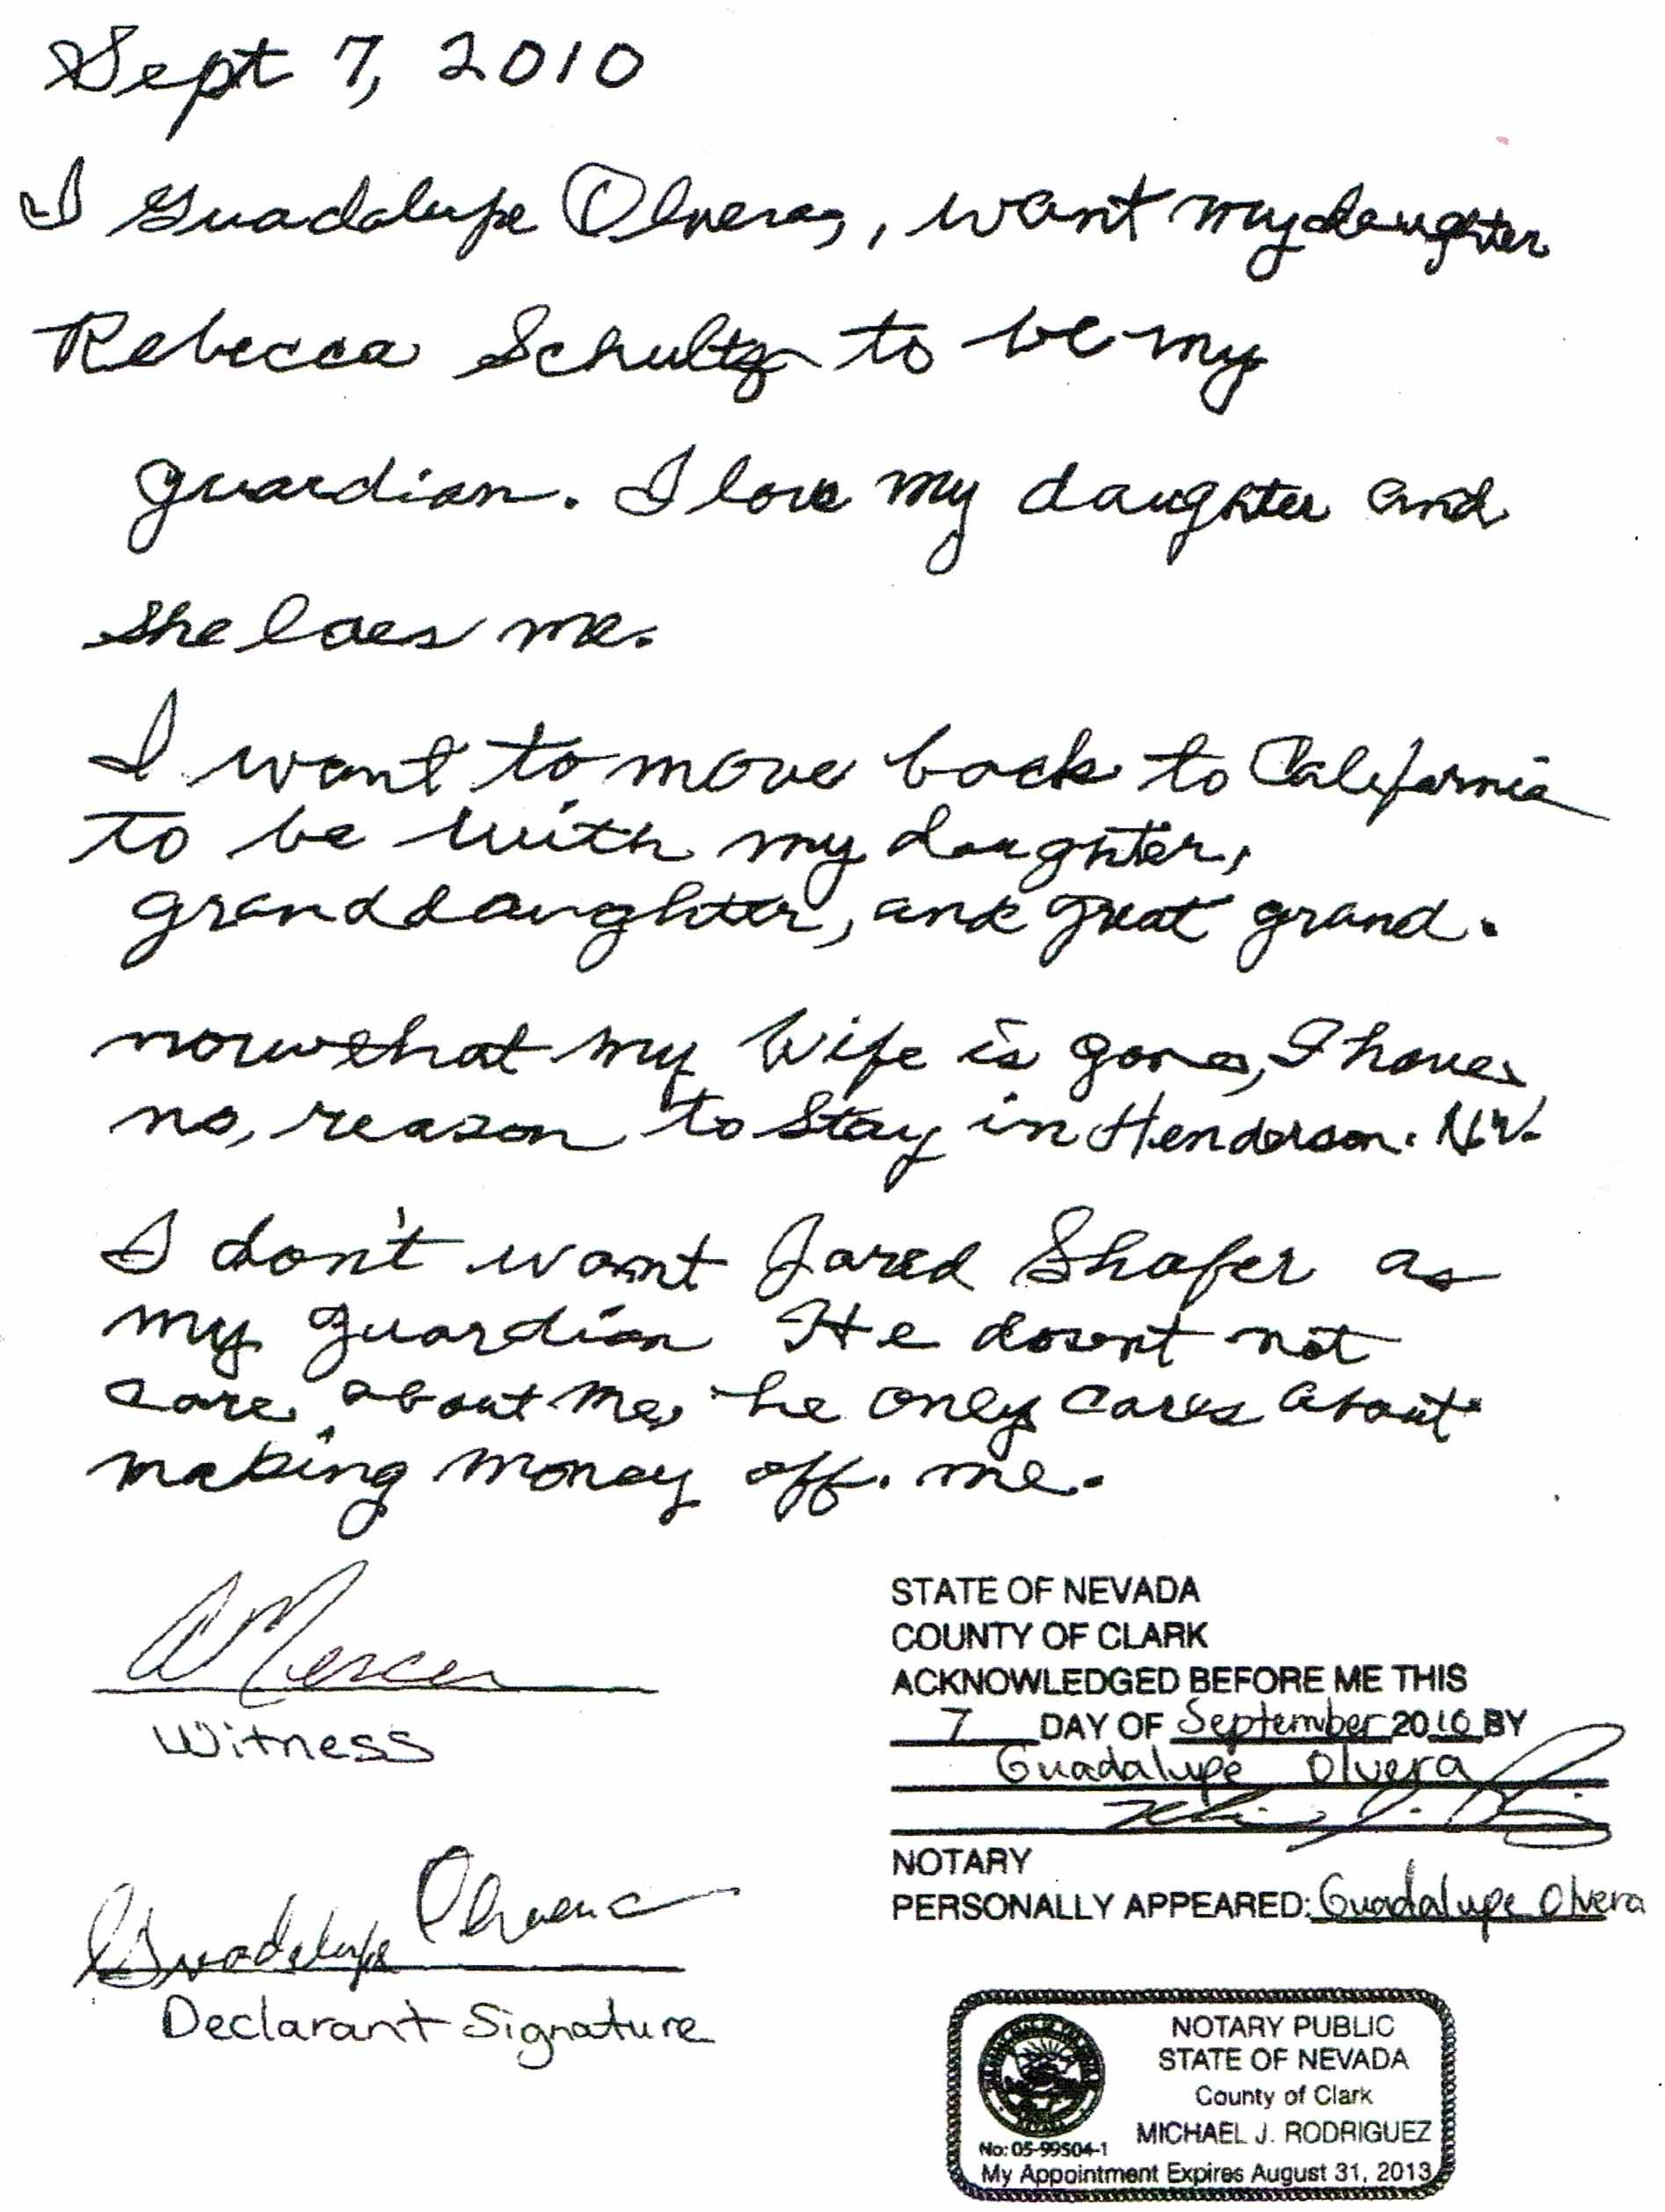 Sept 7, 2010
I Guadalupe Olvera, want my daughter
Rebecca Schultz to be my
guardian. I love my daughter and
she loes me.
I want to move back to California
to be with my daughter,
granddaughter, and great grand.
now that my wife is gone, I have
no, reason to stay in Henderson. N.V.
I don't want Jared Shafer as
my guardian He dosent not
care about me, he only cares about
making money off. me.
Witness
Guadalupe Olvera
Declarant Signature
STATE OF NEVADA
COUNTY OF CLARK
ACKNOWLEDGED BEFORE ME THIS
7 DAY OF September 2010 BY
Guadalupe Olvera
NOTARY
PERSONALLY APPEARED: Guadalupe Olvera
NOTARY PUBLIC
STATE OF NEVADA
County of Clark
MICHAEL J. RODRIGUEZ
No: 05-99504-1
My Appointment Expires August 31, 2013